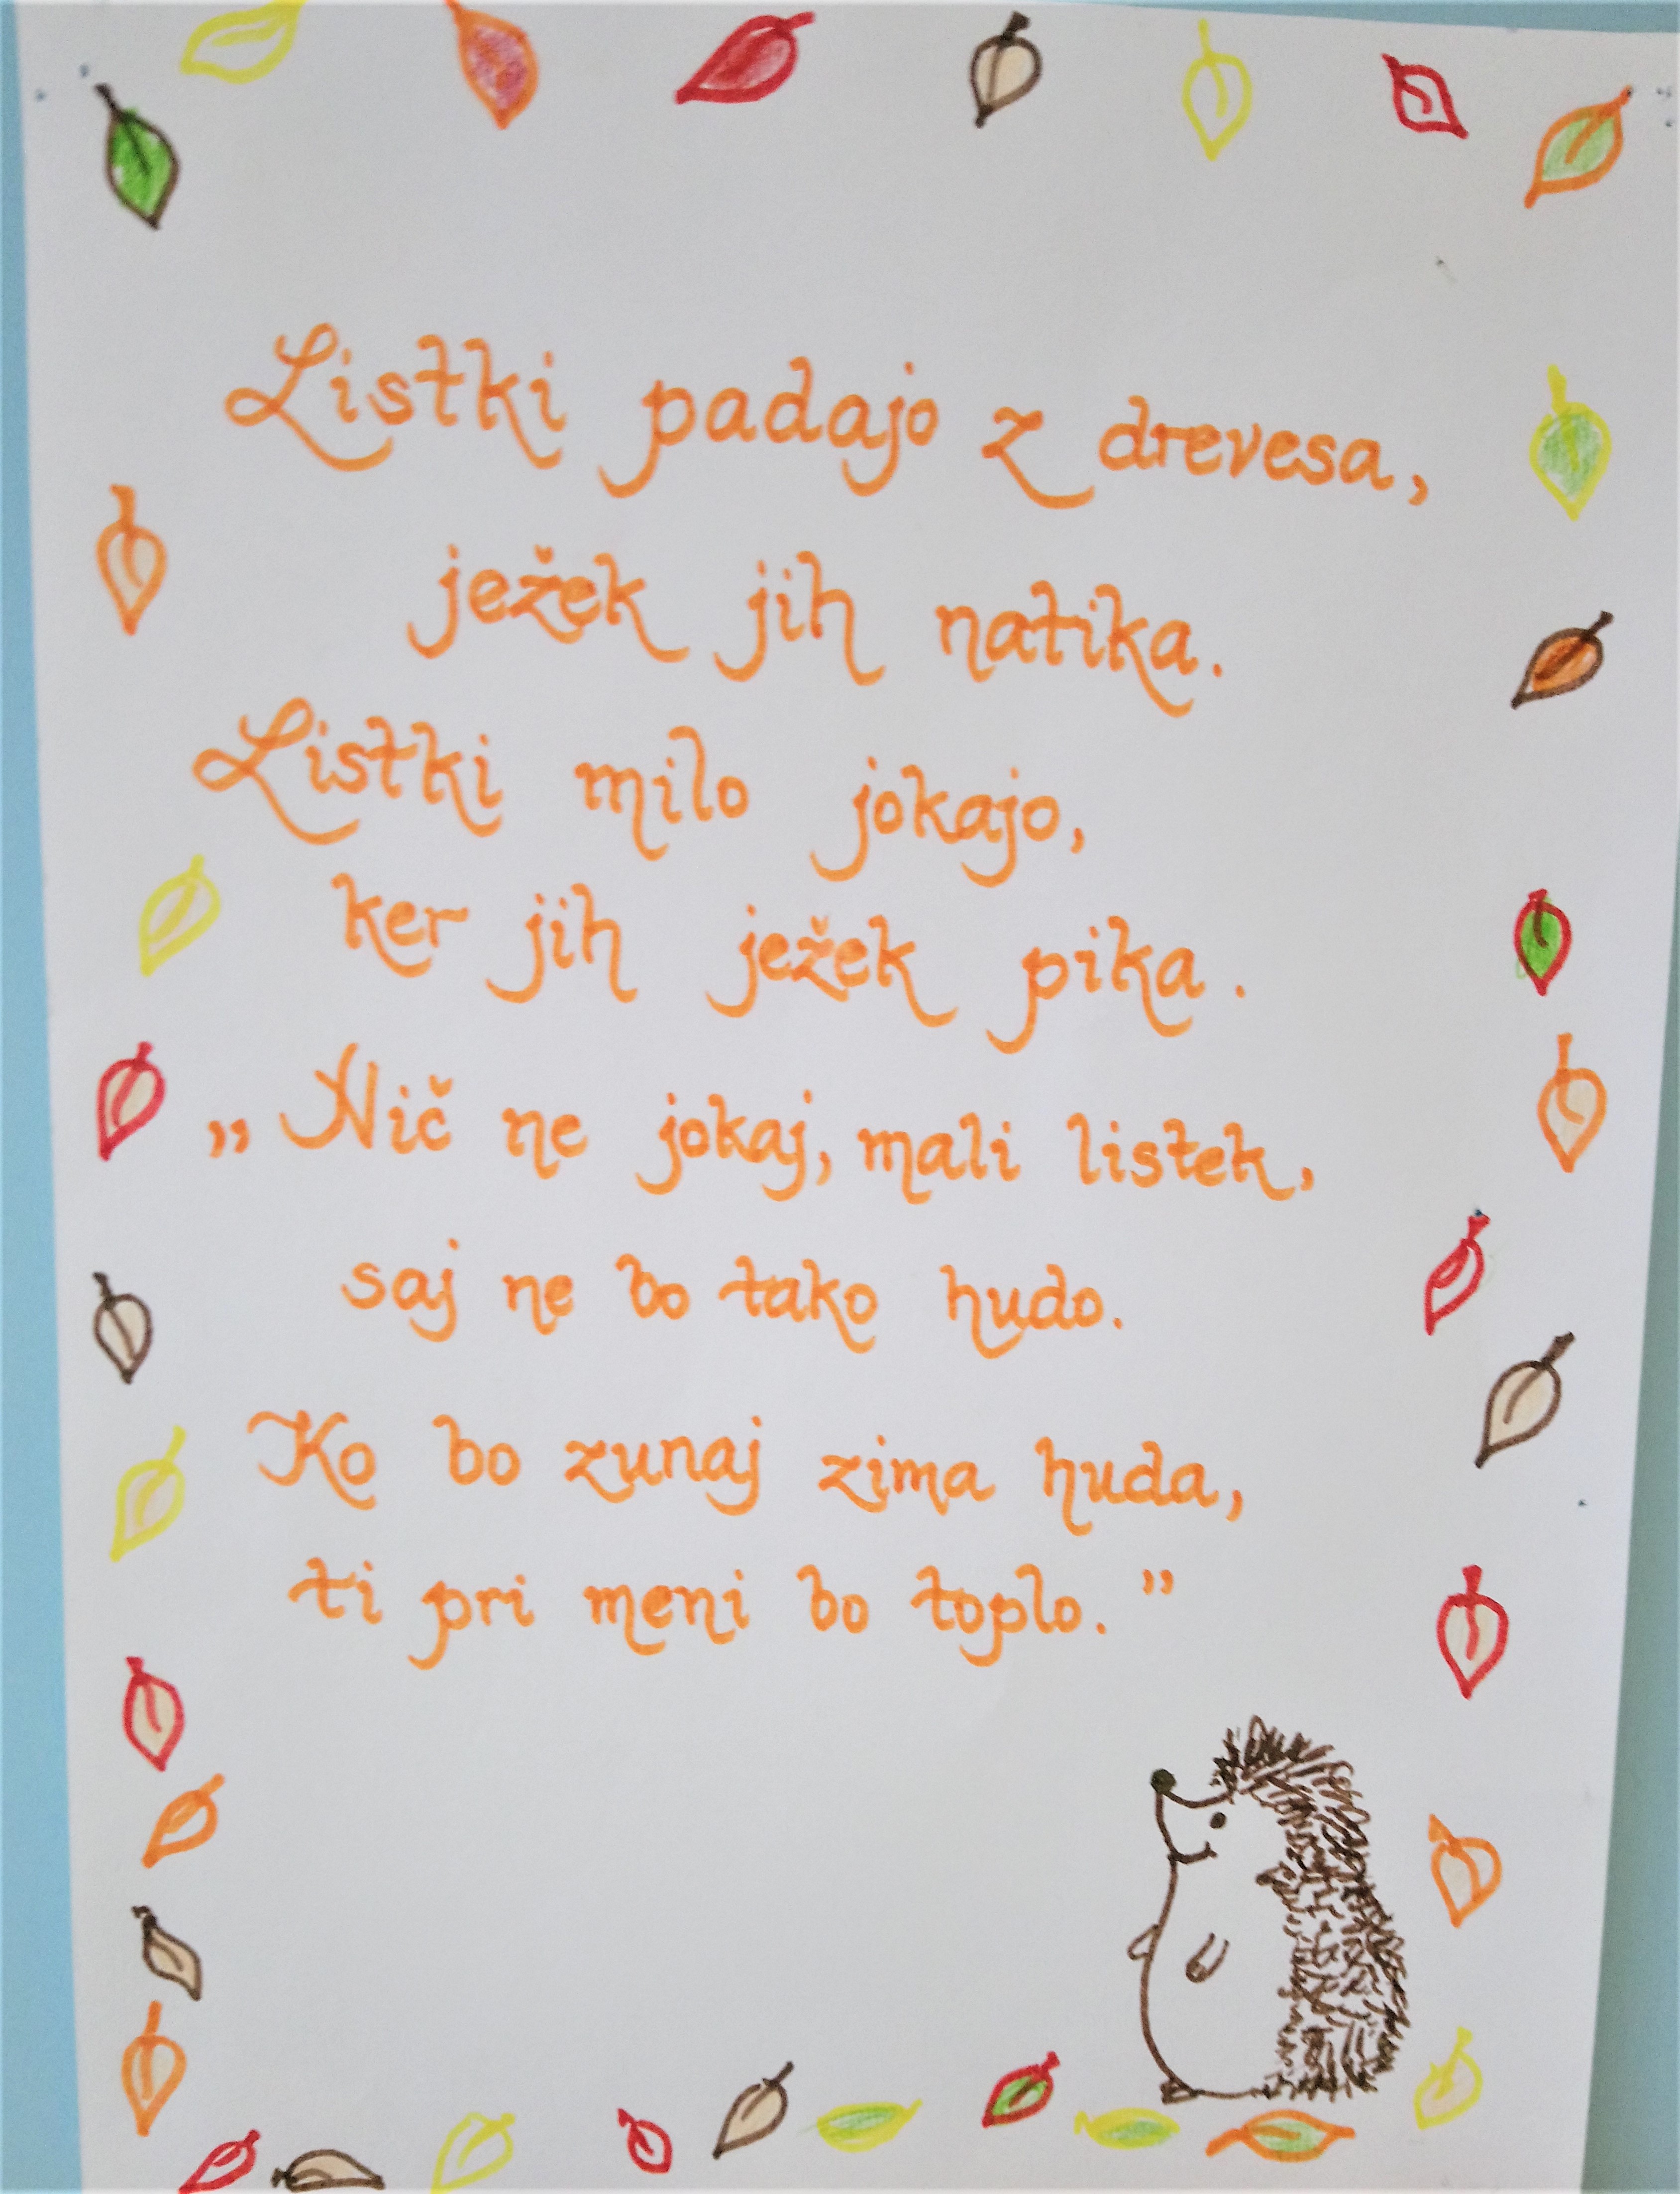 Listki padajo z drevesa,
ježek jih natika.
Listki milo jokajo,
ker jih ježek pika.
„Nič ne jokaj, mali listek,
saj ne bo tako hudo.
Ko bo zunaj zima huda,
ti pri meni bo toplo.”